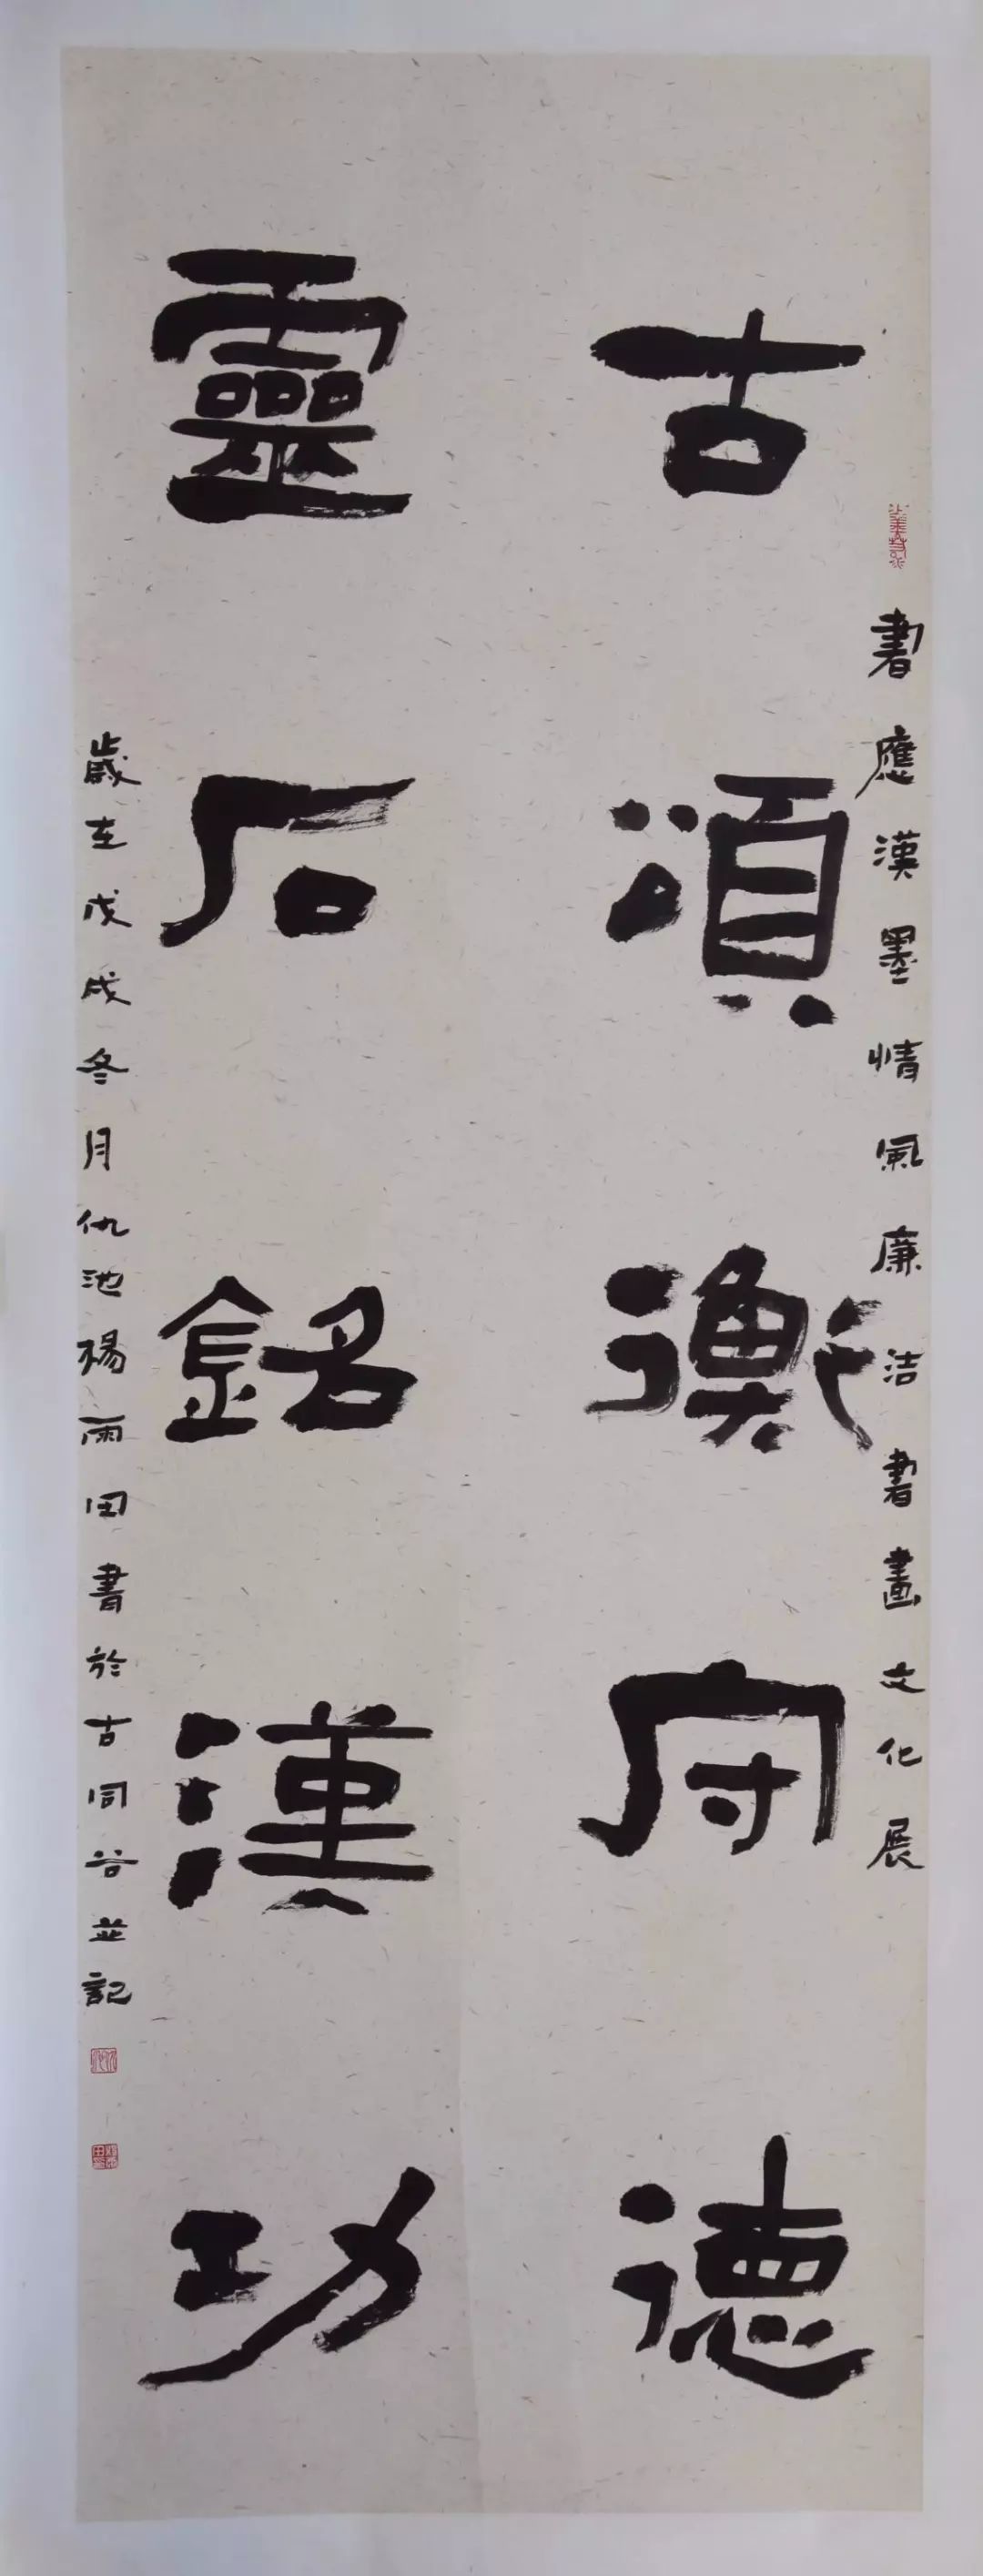 書應漢墨情風廉洁書畫文化展
古頌衡守德
靈石銘漢功
歲在戊戌冬月仇池楊雨田書於古同谷並記